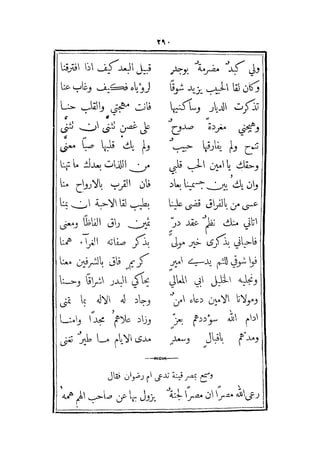 ٢٩٠
ولي كبدٌ مضرمةٌ بوجدٍ قبيل البعد كيف اذا افترقنا
وكان لقا الحبيب يزيد شوقًا لرؤياه فكيف وغاب عنا
تذكرت الديار وساكنيها فانت مهجتي والقلب حنا
وهيجني مغردةٌ صدوحٌ على غصنٍ تثنى ان تثنَّى
تنوح ولم يفارقها حبيبٌ ولم يك قلبها صبًّا معنَّى
وحقك يا امين الحب قلبي من اللذات بعدك ما تهنا
وان يك بين جسمينا بعادٌ فان القرب بالارواح منا
عسى من بالفراق قضى علينا بطيب لقا الاحبة ان يمنا
اتاني منك نظمٌ عقد درٍّ ثمينٍ راق الفاظًا ومعنى
فاحياني بذكرى خير مولًى بذكر صفاته الغرآء همنا
فوا شوقي للثم يدي اميرٍ كريمٍ فاق بالشرفين معنا
ونجليه الخليل ابي المعالي يحاكي البدر اشراقًا وحسنا
ومولانا الامين دعاء امنٍ وجاد له الاله بما تمنى
ادام الله سؤددهم بعزٍّ وزاد علاهم مجدًا وامنا
ومدهم باقبالٍ وسعدٍ مدى الايام ما طيرٌ تغنى
وسمع بمصر قينة تدعى ام رضوان فقال
رعى الله مصرًا ان مصرًا لجنةٌ يزول بها عن صاحب الهم همه